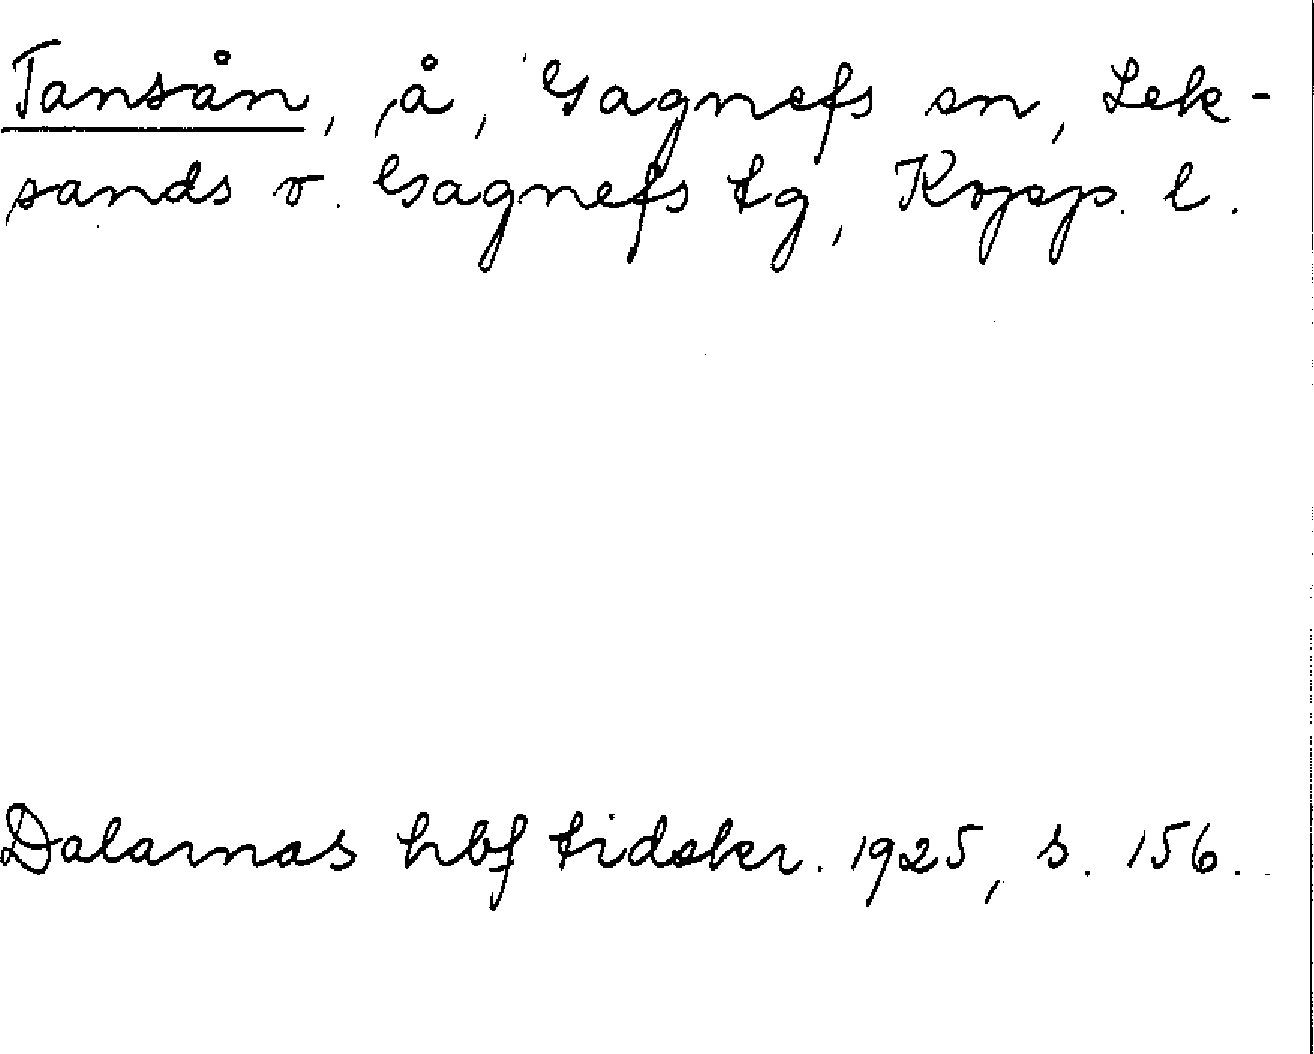 Tansån, å, Gagnefs sn, Lek-
sands o. Gagnefs tg, Kopp. l.
Dalarnas hbf tidskr. 1925, s. 156.